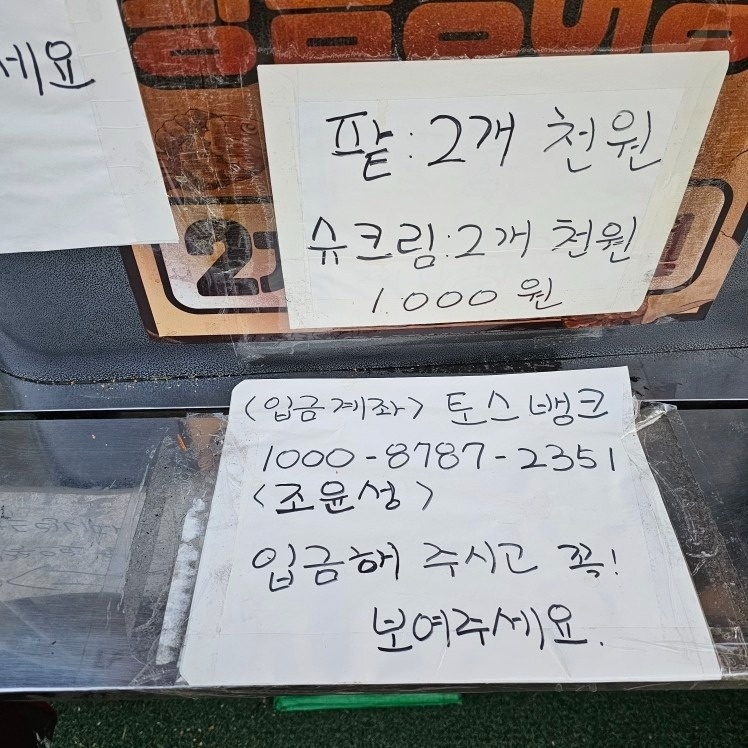 세요
팥 : 2개 천원
슈크림 : 2개 천원
1.000 원
<입금계좌> 토스뱅크
1000-8787-2351
<조윤성>
입금해 주시고 꼭!
보여주세요.